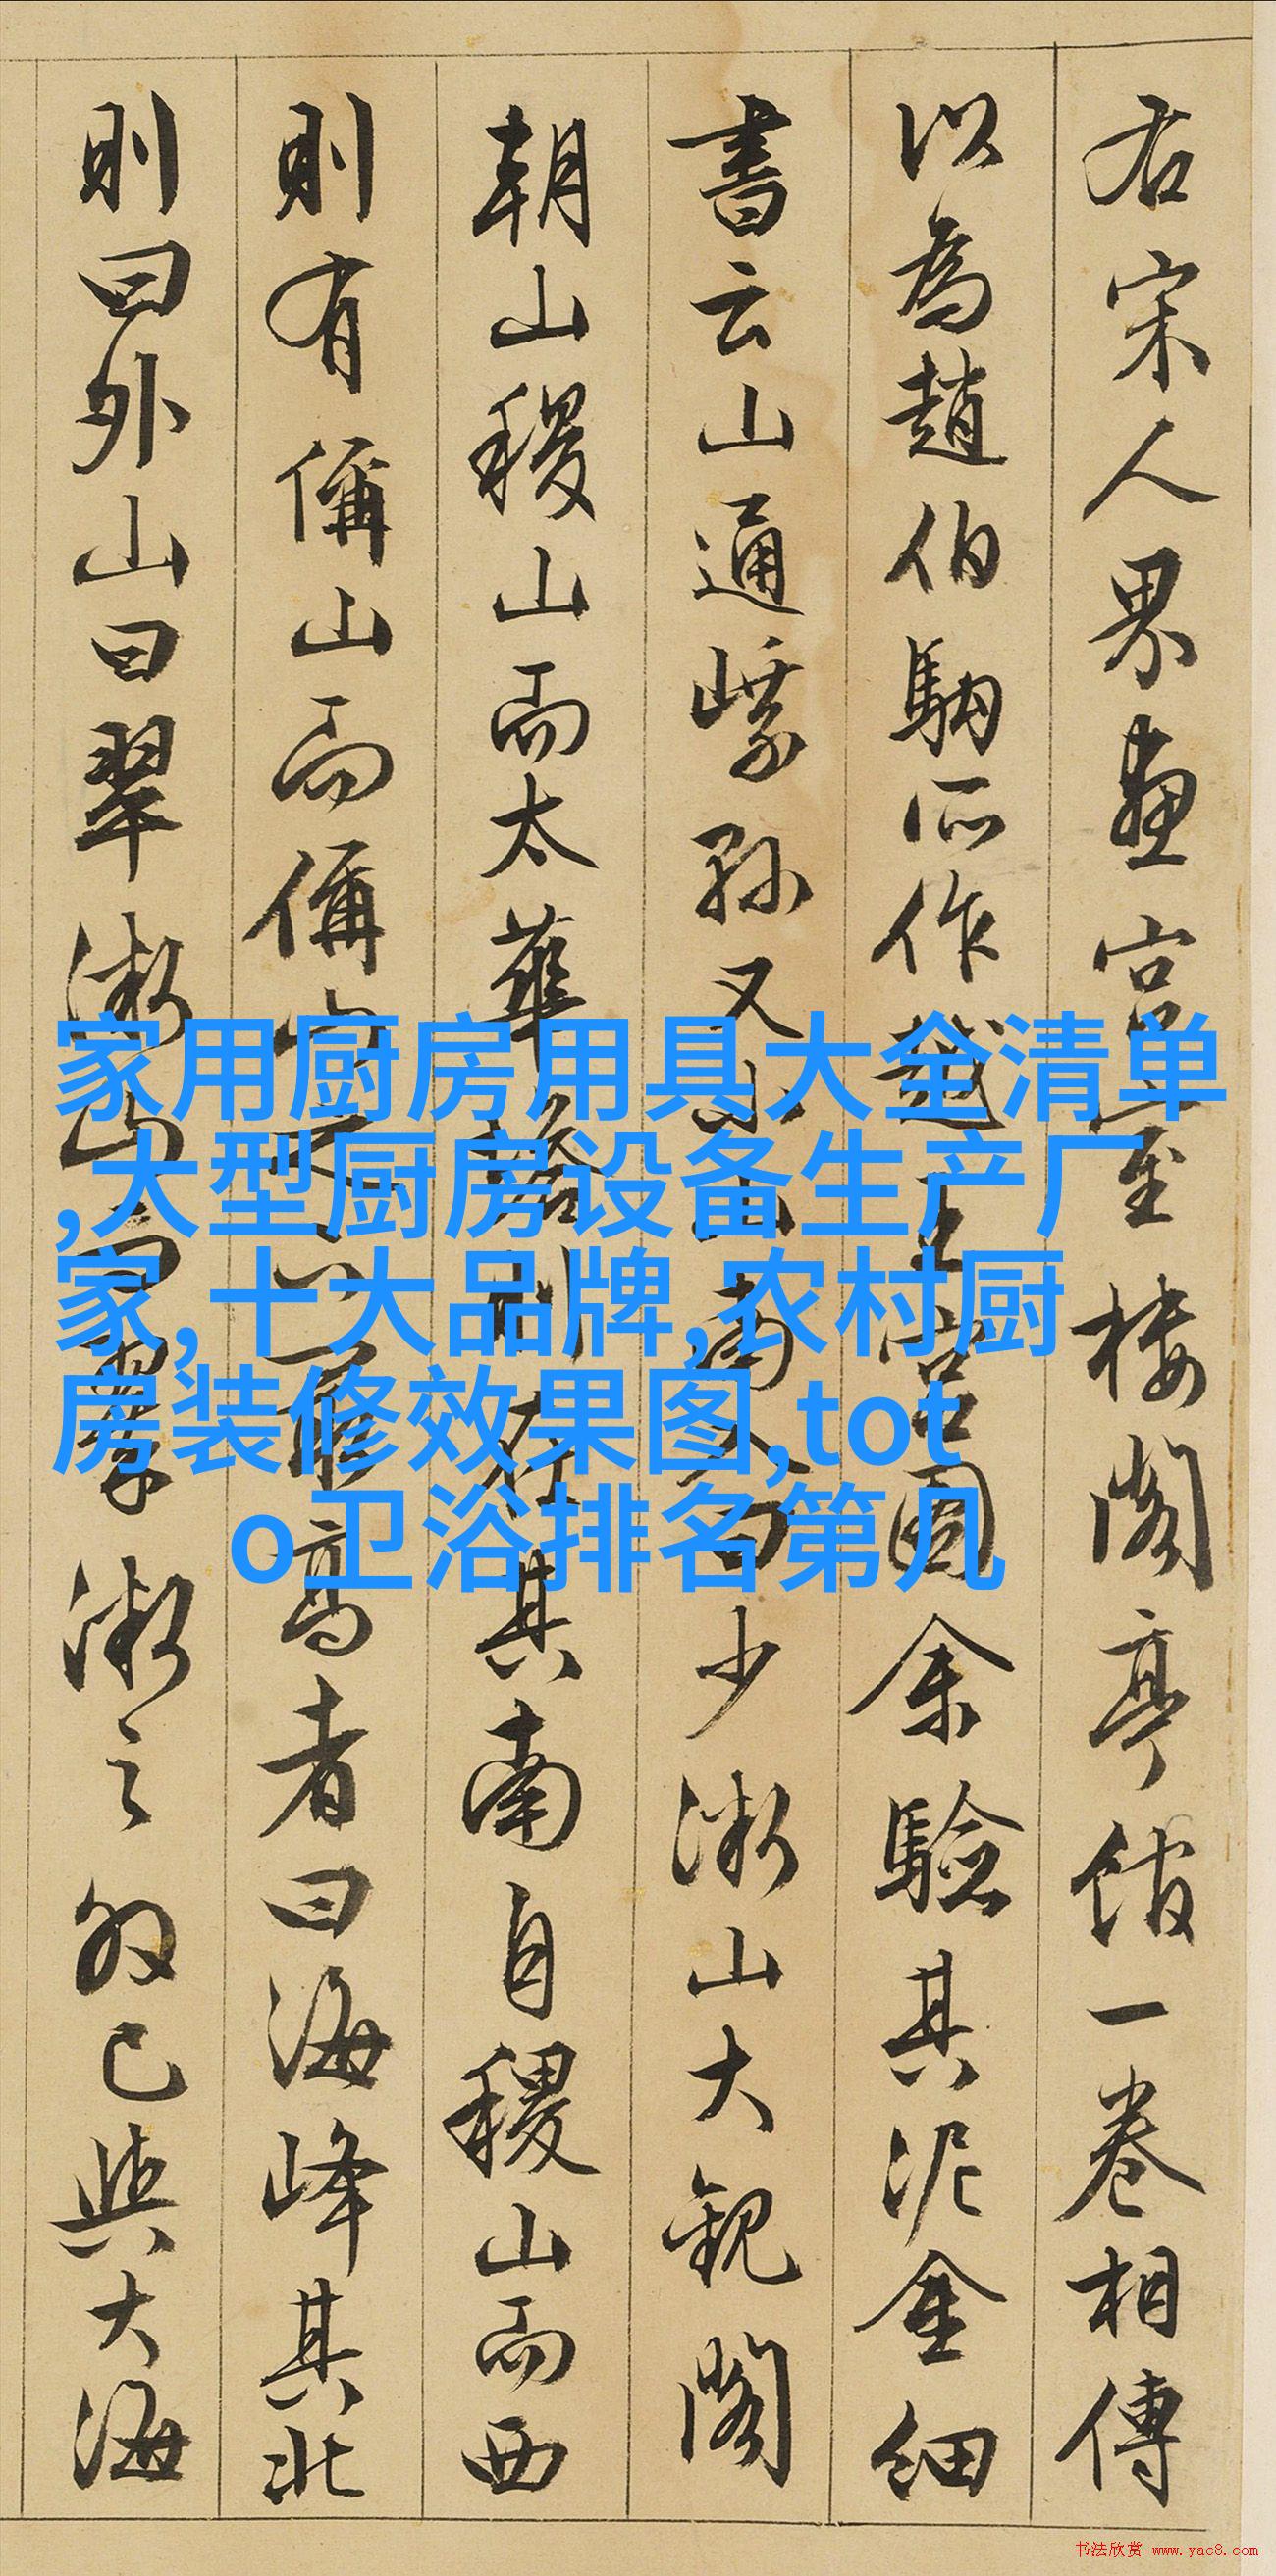 右宋人界畫宮室樓閣亭館一卷相傳
以為趙伯駒所作越王宮圖余驗其泥金細
書云山通 孫又 山 南 少漱山大觀閣
朝山稷山而太華 則在其南自稷山而西
則有偁山而偁山 最高者曰海峰其北
則曰外山曰翠漱山 曰 翠漱之 已與大海
家用厨房用具大全清单
,大型厨房设备生产厂
家,十大品牌,农村厨
房装修效果图,tot
o卫浴排名第几
书法欣赏 www.yac8.com